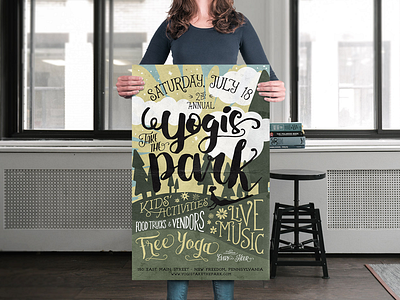 SATURDAY, JULY 18
2nd
ANNUAL
Yogis
TAKE THE
Park
KIDS'
ACTIVITIES
LIVE
MUSIC
FOOD TRUCKS & VENDORS
Free Yoga
150 EAST MAIN STREET · NEW FREEDOM, PENNSYLVANIA